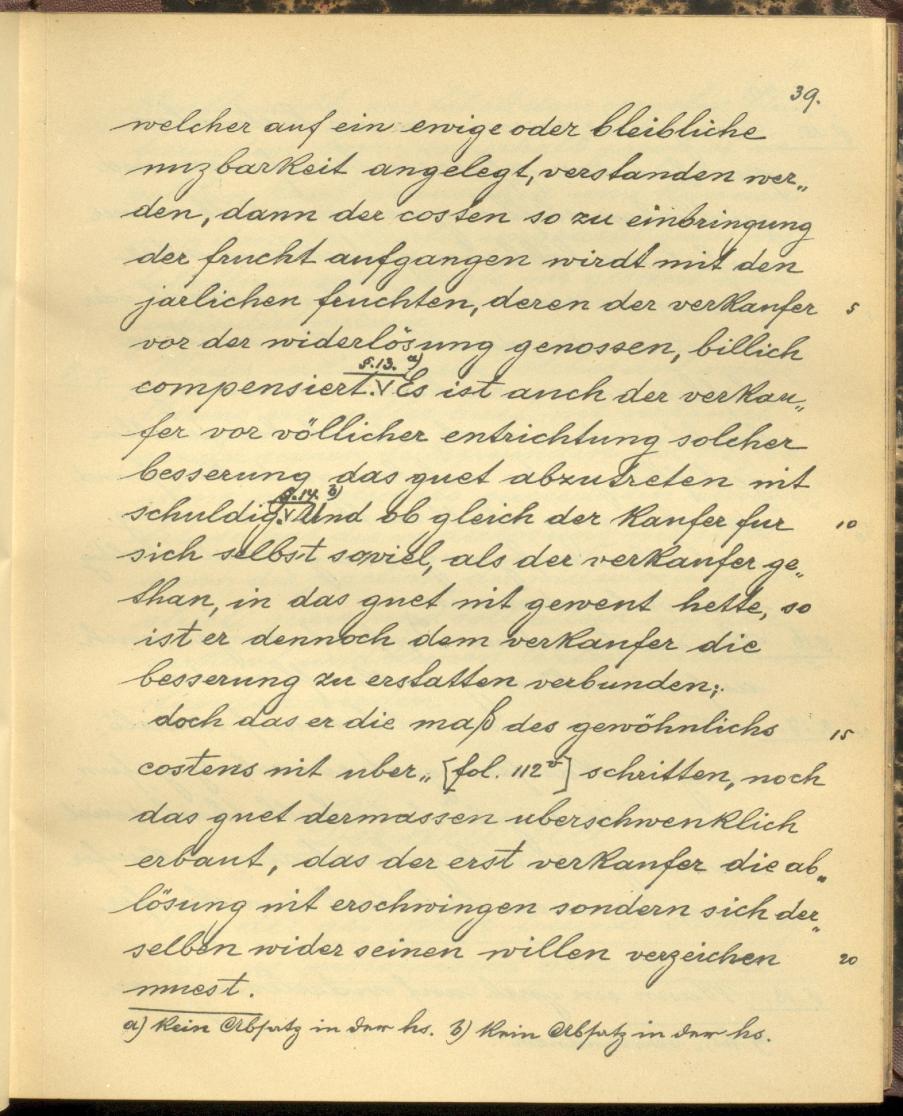 39.
welcher auf ein ewige oder bleibliche
nuzbarkeit angelegt, verstanden wer„
den, dann der costen so zu einbringung
der frucht aufgangen wirdt mit den
jarlichen fruchten, deren der verkaufer 5
vor der widerlösung genossen, billich
compensiert. §.13. a) Es ist auch der verkau„
fer vor völlicher entrichtung solcher
besserung das guet abzutreten nit
schuldig. §.14. b) Und ob gleich der kaufer fur 10
sich selbst soviel, als der verkaufer ge„
than, in das guet nit gewent hette, so
ist er dennoch dem verkaufer die
besserung zu erstatten verbunden;
doch das er die maß des gewöhnlichs 15
costens nit uber„ [fol. 112v] schritten, noch
das guet dermassen uberschwenklich
erbaut, das der erst verkaufer die ab„
lösung nit erschwingen sondern sich der„
selben wider seinen willen verzeichen 20
muest.
a) Kein Absatz in der hs. b) Kein Absatz in der hs.